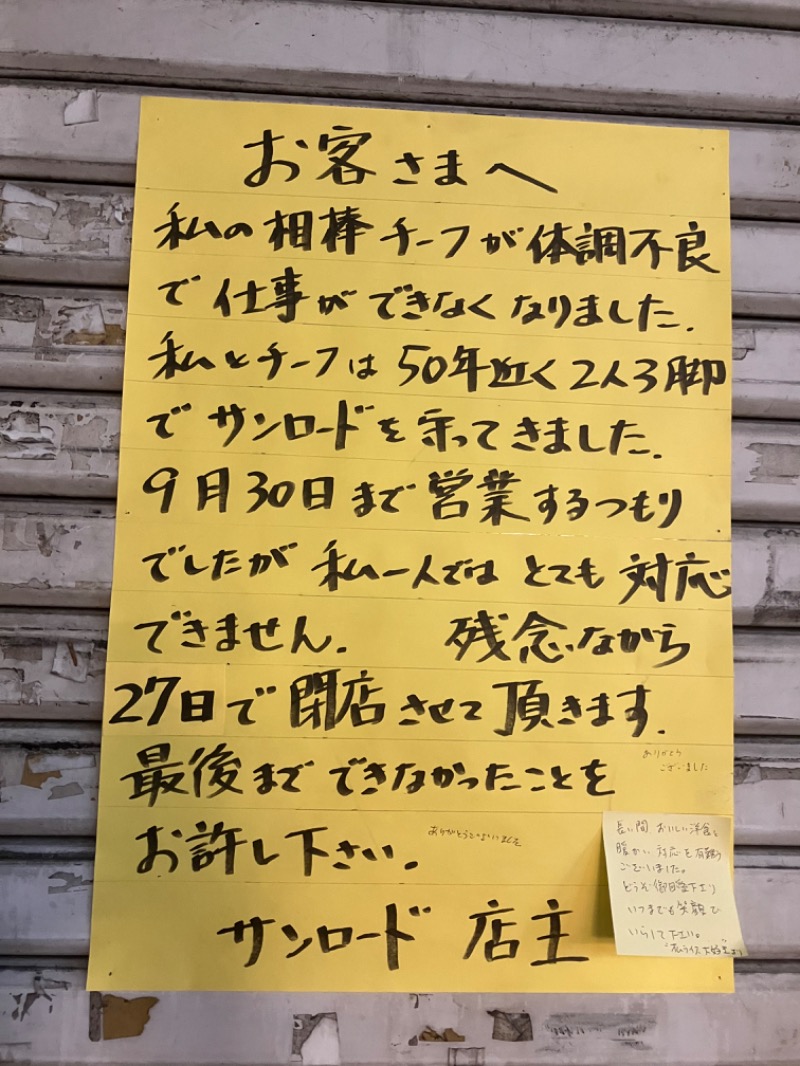 お客さまへ
私の相棒チーフが体調不良
で仕事ができなくなりました.
私とチーフは50年近く2人3脚
でサンロードを守ってきました.
9月30日まで営業するつもり
でしたが 私一人ではとても対応
できません. 残念ながら
27日で閉店させて頂きます.
最後までできなかったことを
ありがとう
ございました
お許し下さい.
ありがとうございました
サンロード 店主
長い間 おいしい洋食、
暖かい 対応を有難う
ございました。
どうぞ御自愛下さり
いつまでも笑顔で
いらして下さい。